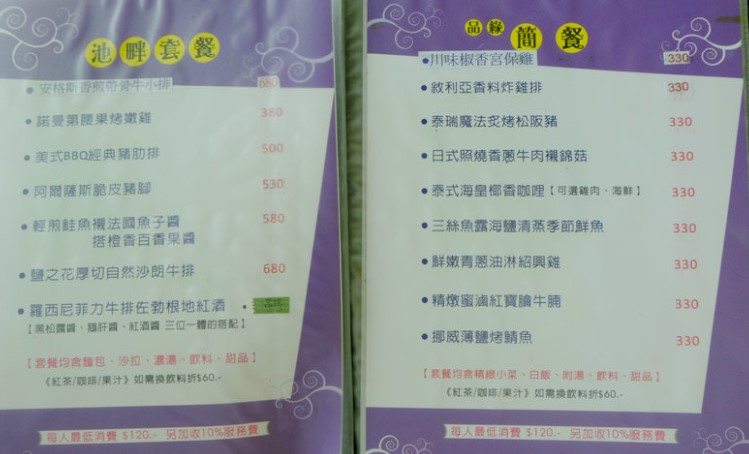 池畔套餐
安格斯香煎帶骨牛小排 680
諾曼第腰果烤嫩雞 380
美式BBQ經典豬肋排 500
阿爾薩斯脆皮豬腳 530
輕煎鮭魚襯法國魚子醬 580
搭橙香百香果醬
鹽之花厚切自然沙朗牛排 680
羅西尼菲力牛排佐勃根地紅酒
【黑松露醬、鵝肝醬、紅酒醬 三位一體的搭配】
【套餐均含麵包、沙拉、濃湯、飲料、甜品】
《紅茶/咖啡/果汁》如需換飲料折$60.-
每人最低消費 $120.- 另加收10%服務費
品綠簡餐
川味椒香宮保雞 330
敘利亞香料炸雞排 330
泰瑞魔法炙烤松阪豬 330
日式照燒香蔥牛肉襯錦菇 330
泰式海皇椰香咖哩【可選雞肉、海鮮】 330
三絲魚露海鹽清蒸季節鮮魚 330
鮮嫩青蔥油淋紹興雞 330
精燉蜜滷紅寶膾牛腩 330
挪威薄鹽烤鯖魚 330
【套餐均含精緻小菜、白飯、附湯、飲料、甜品】
《紅茶/咖啡/果汁》如需換飲料折$60.-
每人最低消費 $120.- 另加收10%服務費